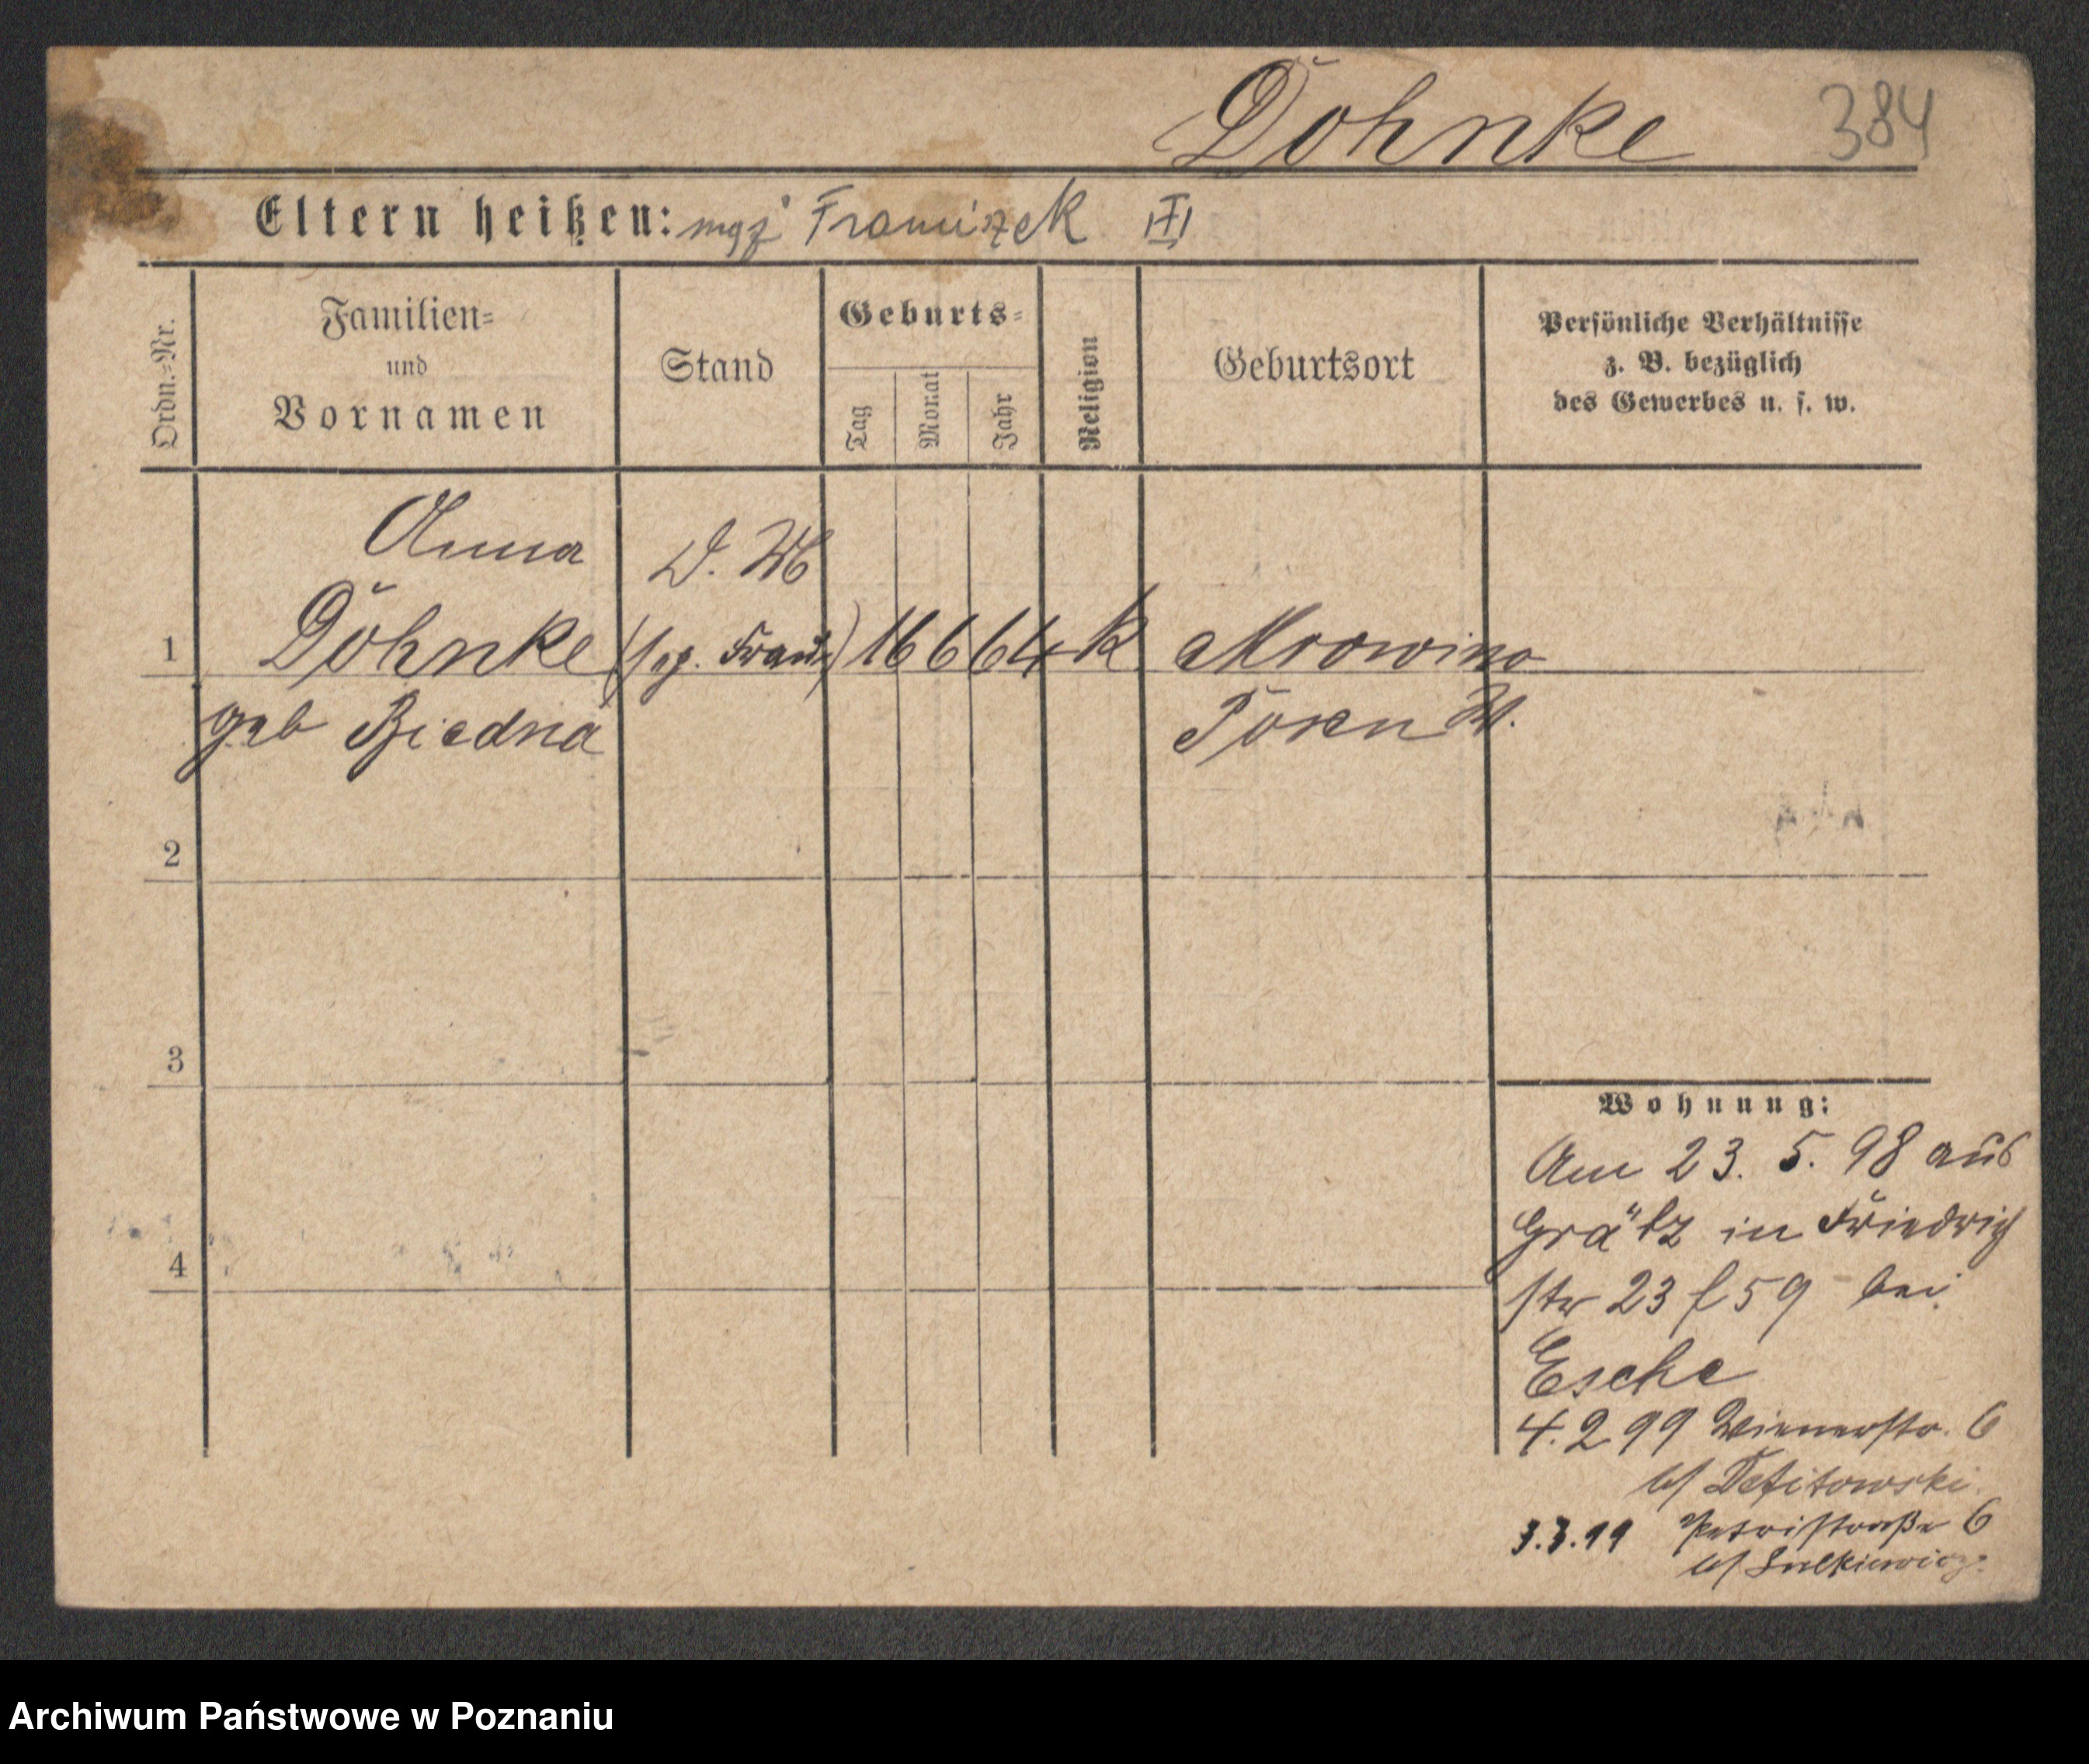 Döhnke 384
Eltern heißen: mąż Franciszek III
Ordn.-Nr.
Familien-
und
Vornamen
Stand
Geburts-
Tag
Monat
Jahr
Religion
Geburtsort
Persönliche Verhältnisse
z. B. bezüglich
des Gewerbes u. s. w.
Anna
D. M
1 Döhnke (sep. Frau) 16 6 64 K Mrowino
geb Biedna Posen W.
2
3
4
Wohnung:
Am 23. 5. 98 aus
Grätz in Friedrich
str 23 f 59 bei
Esche
4. 2 99 Wienerstr. 6
b/
3.3.99 Petristraße 6
b/ Sulkiewicz.
Archiwum Państwowe w Poznaniu